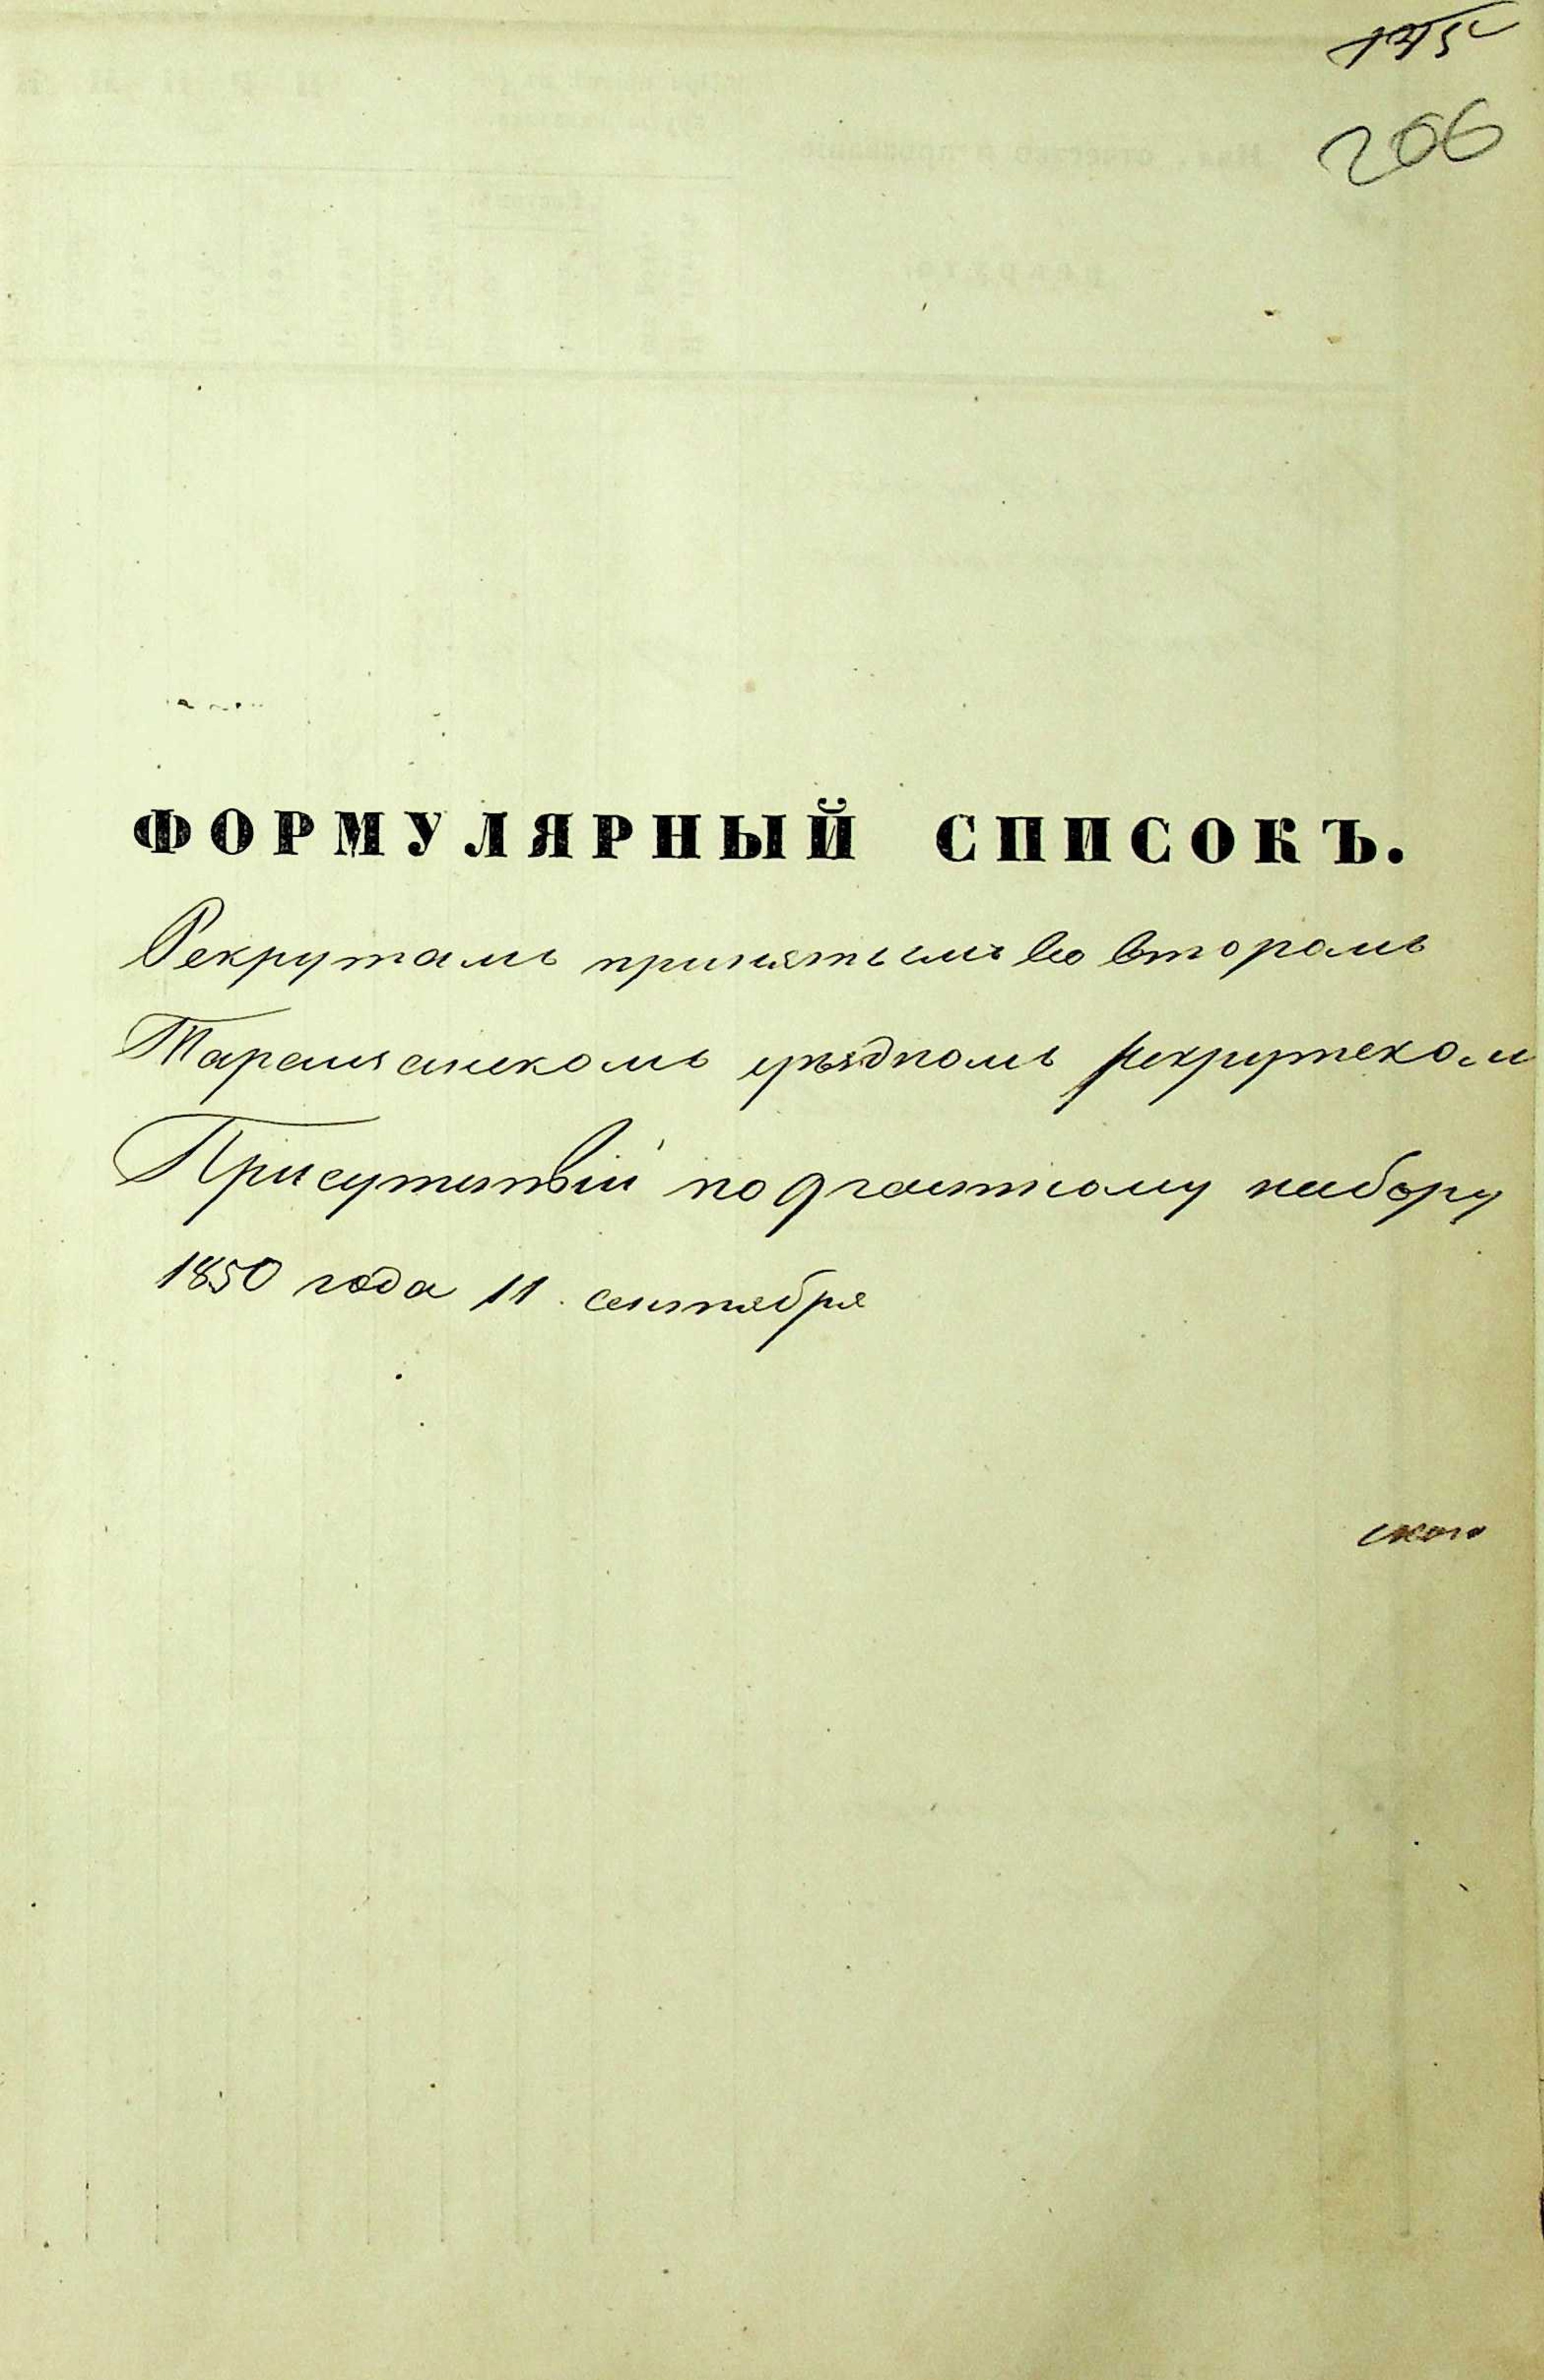 206
ФОРМУЛЯРНЫЙ СПИСОКЪ.
Рекрутамъ принятымъ во второмъ
Таращанскомъ уѣздномъ рекрутском
Присутствіи по 9 частному набору
1850 года 11 сентября